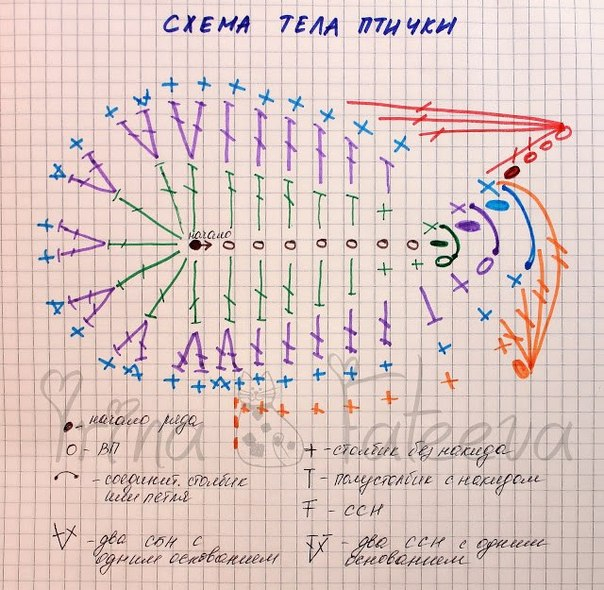 СХЕМА ТЕЛА ПТИЧКИ
начало
Irina Fateeva
- начало ряда
- ВП
- соединит. столбик
или петля
- два сбн с
одним основанием
- столбик без накида
- полустолбик с накидом
- ССН
- два ССН с одним
основанием